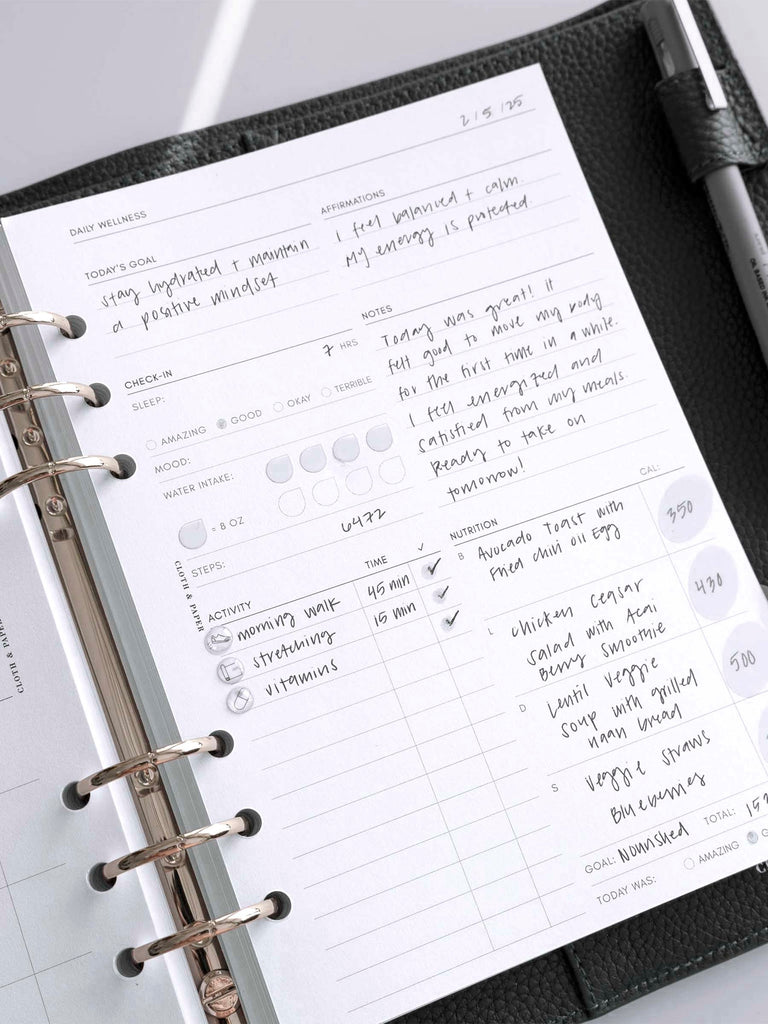 2/5/25
DAILY WELLNESS
TODAY'S GOAL
stay hydrated + maintain
a positive mindset
AFFIRMATIONS
I feel balanced + calm.
My energy is protected.
CHECK-IN
SLEEP:
7 HRS
AMAZING GOOD OKAY TERRIBLE
MOOD:
WATER INTAKE:
= 8 OZ
STEPS:
6472
NOTES
Today was great! it
felt good to move my body
for the first time in a while.
I feel energized and
satisfied from my meals.
Ready to take on
tomorrow!
ACTIVITY TIME ✓
morning walk 45 min ✓
stretching 15 min ✓
vitamins ✓
NUTRITION CAL:
B Avocado toast with
Fried chili oil Egg
350
L chicken ceasar
salad with Acai
Berry Smoothie
430
D Lentil veggie
soup with grilled
naan bread
500
S veggie straws
Blueberries
GOAL: Nourished TOTAL:
TODAY WAS: AMAZING
CLOTH & PAPER
CLOTH & PAPER